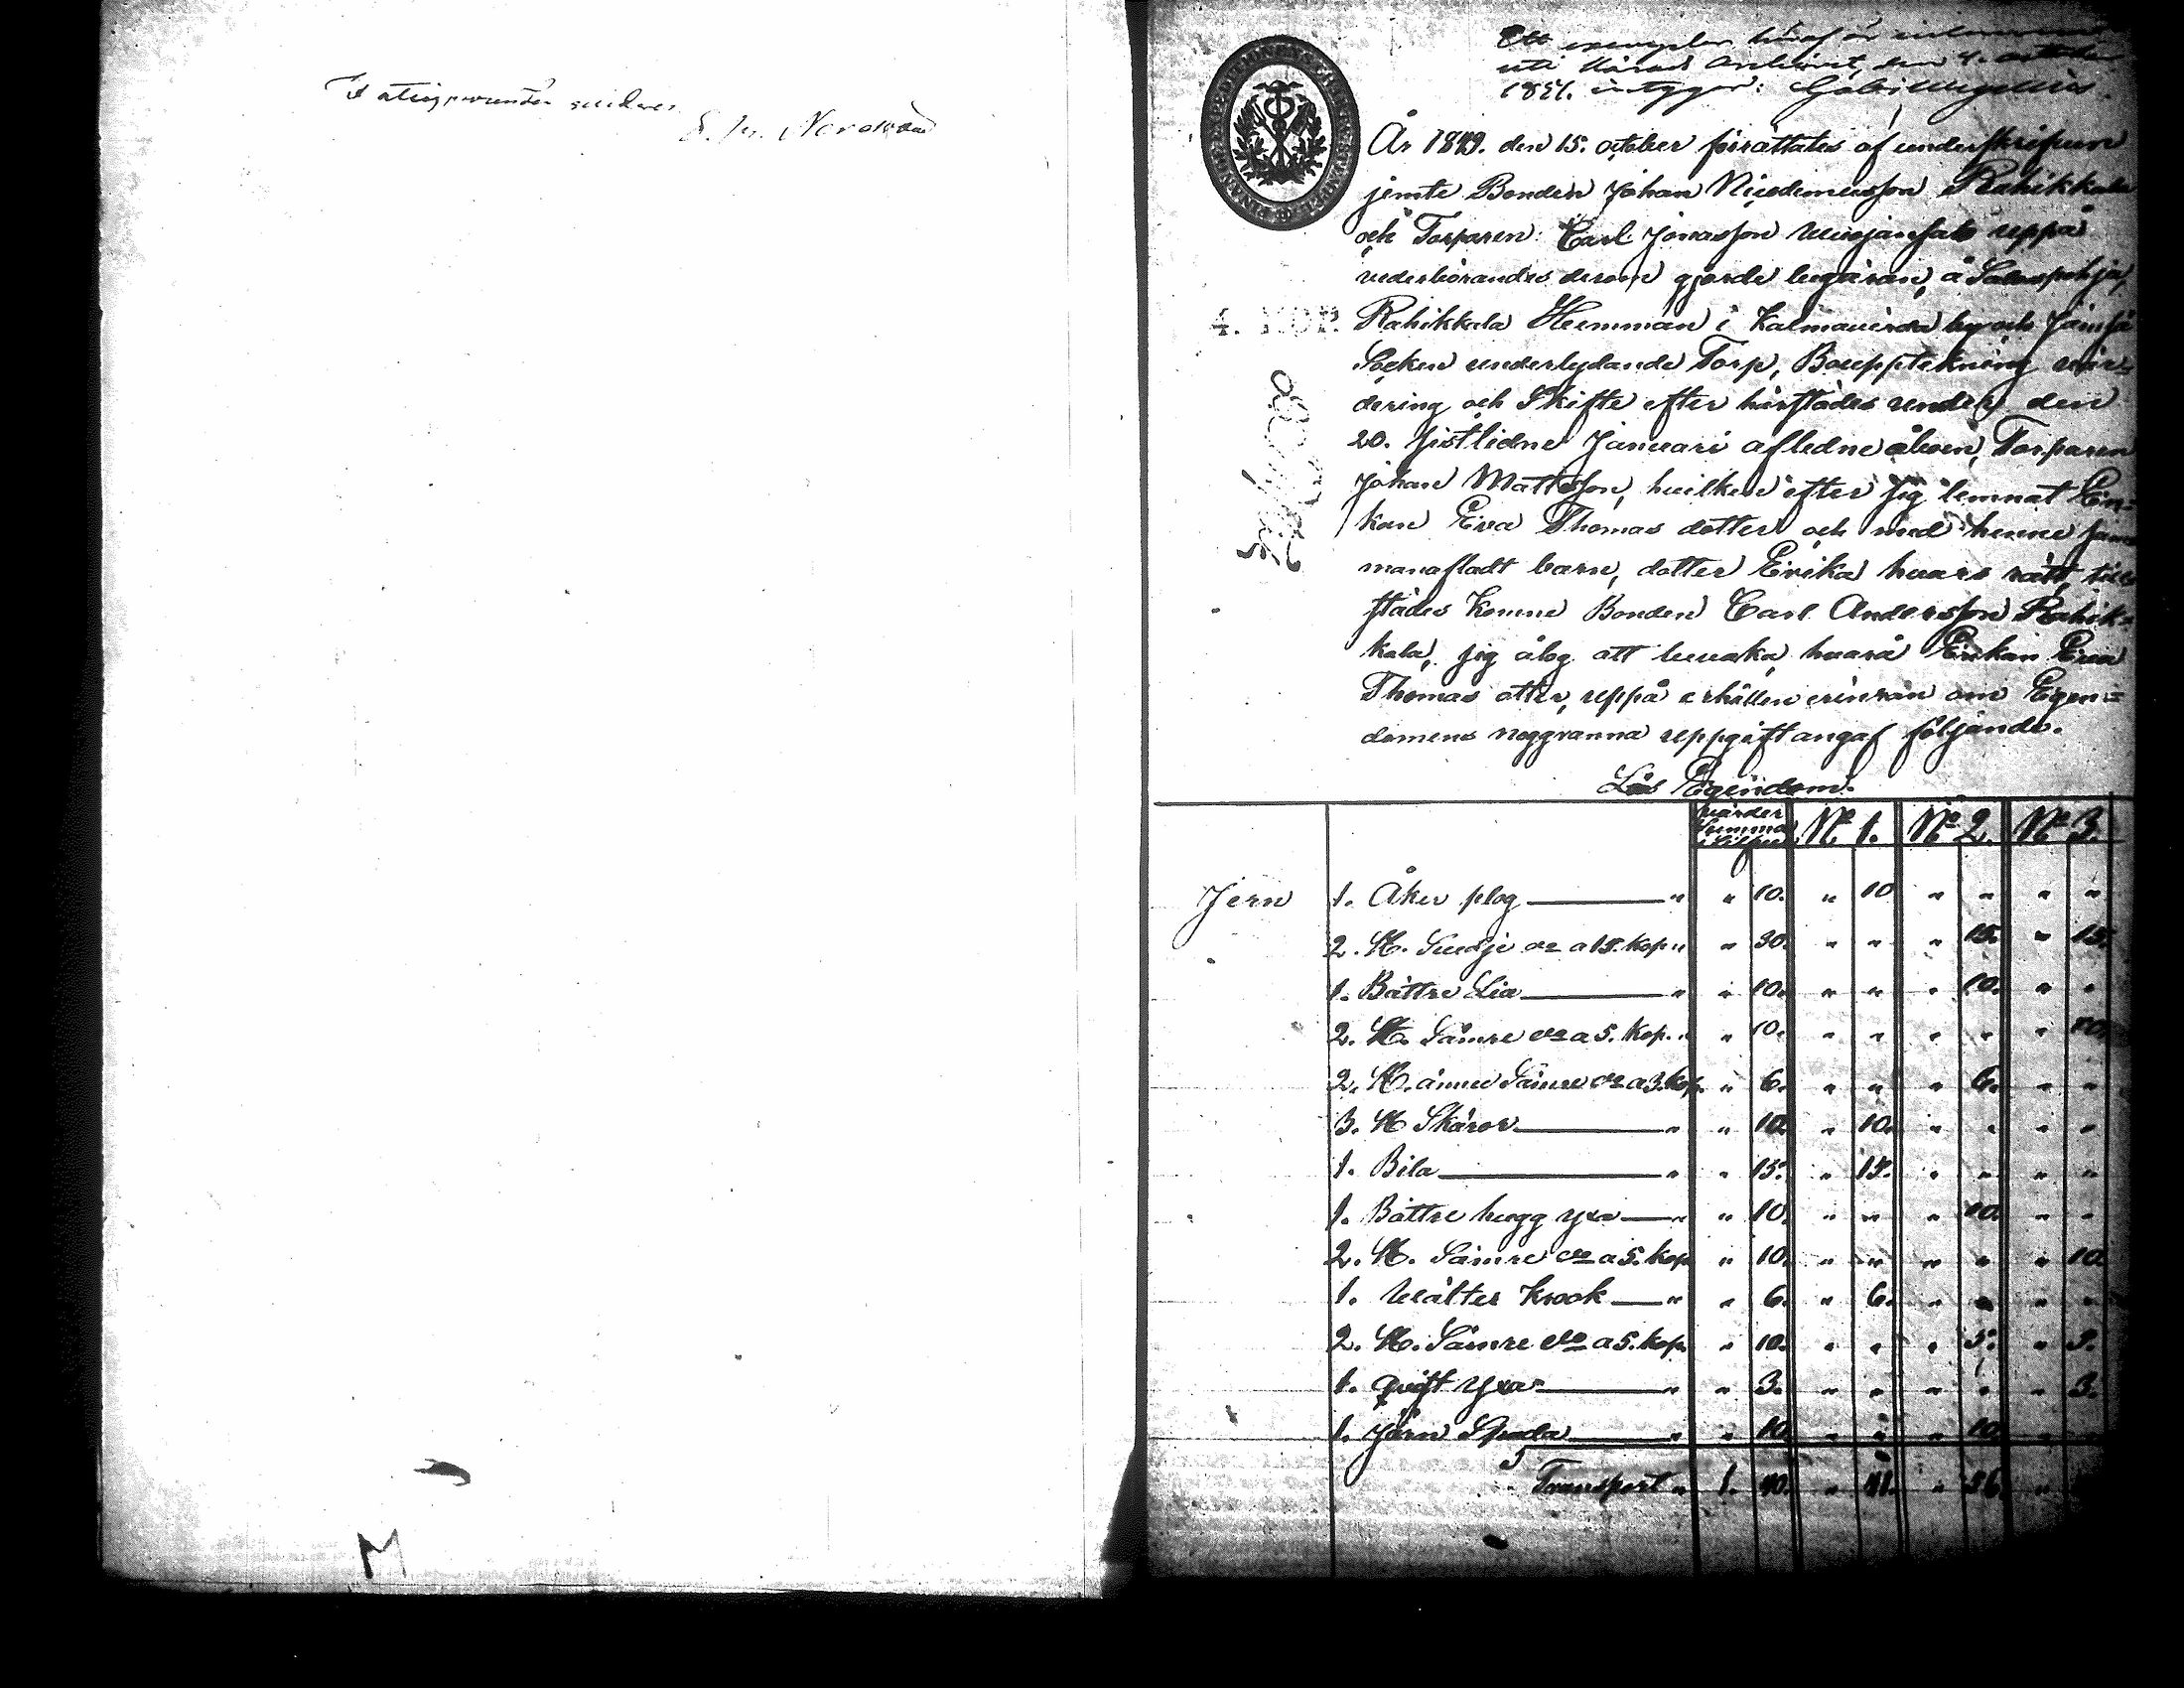 E. M. Nordman
M
Ett exemplar häraf är inlemnadt
uti Härads Archivet, den 4. october
1851. intygar:
År 1849. den 15. october förrättades af underskrifven
jemte Bonden Johan Nicodemusson Rahikkala
och Torparen Carl Jonasson uppå
vederbörandes derom gjorde begäran, å Salospohja,
4. KOP. Rahikkala Hemman i Kalmavirda by och Jämsä
Socken underlydande Torp, Boupptekning vär=
dering och Skifte efter härstädes under den
20. sistlidne Januari aflednе åboen, Torparen
Johan Mattsson, hvilken efter sig lemnat En=
kan Eva Thomas dotter och med henne sam
manafladt barn, dotter Erika hvars rätt till
städes komne Bonden Carl Andersson Rahik=
kala, sig åtog att bevaka, hvarå Enkan Eva
Thomas otter, uppå erhållen erinran om Egen=
domens noggranna uppgift angaf följande.
Lös Egendom.
Värder Summa i Silfver N° 1. N° 2. N° 3.
Jern 1. Åker plog " " 10. " 10 " " " "
2. St. do a 15. kop " " 30. " " " 15. " 15.
1. Bättre Lia " " 10. " " " 10. " "
2. St. Sämre do a 5. kop. " " 10. " " " " " 10.
2. St. ännu Sämre do a 3. kop. " 6. " " " 6. " "
3. St Skäror " " 10. " 10. " " " "
1. Bila " " 15. " 15. " " " "
1. Bättre hugg yxa " " 10. " " " 10. " "
2. St. Sämre do a 5. kop " 10. " " " " " 10.
1. Wälter Krook " " 6. " 6. " " " "
2. St. Sämre do a 5. kop. " 10. " " " 5. " 5.
1. Qvist yxa " " 3. " " " " " 3.
1. Järn Spada " " 10. " " " 10. " "
Transport " 1. 40. " 41. " 56. "